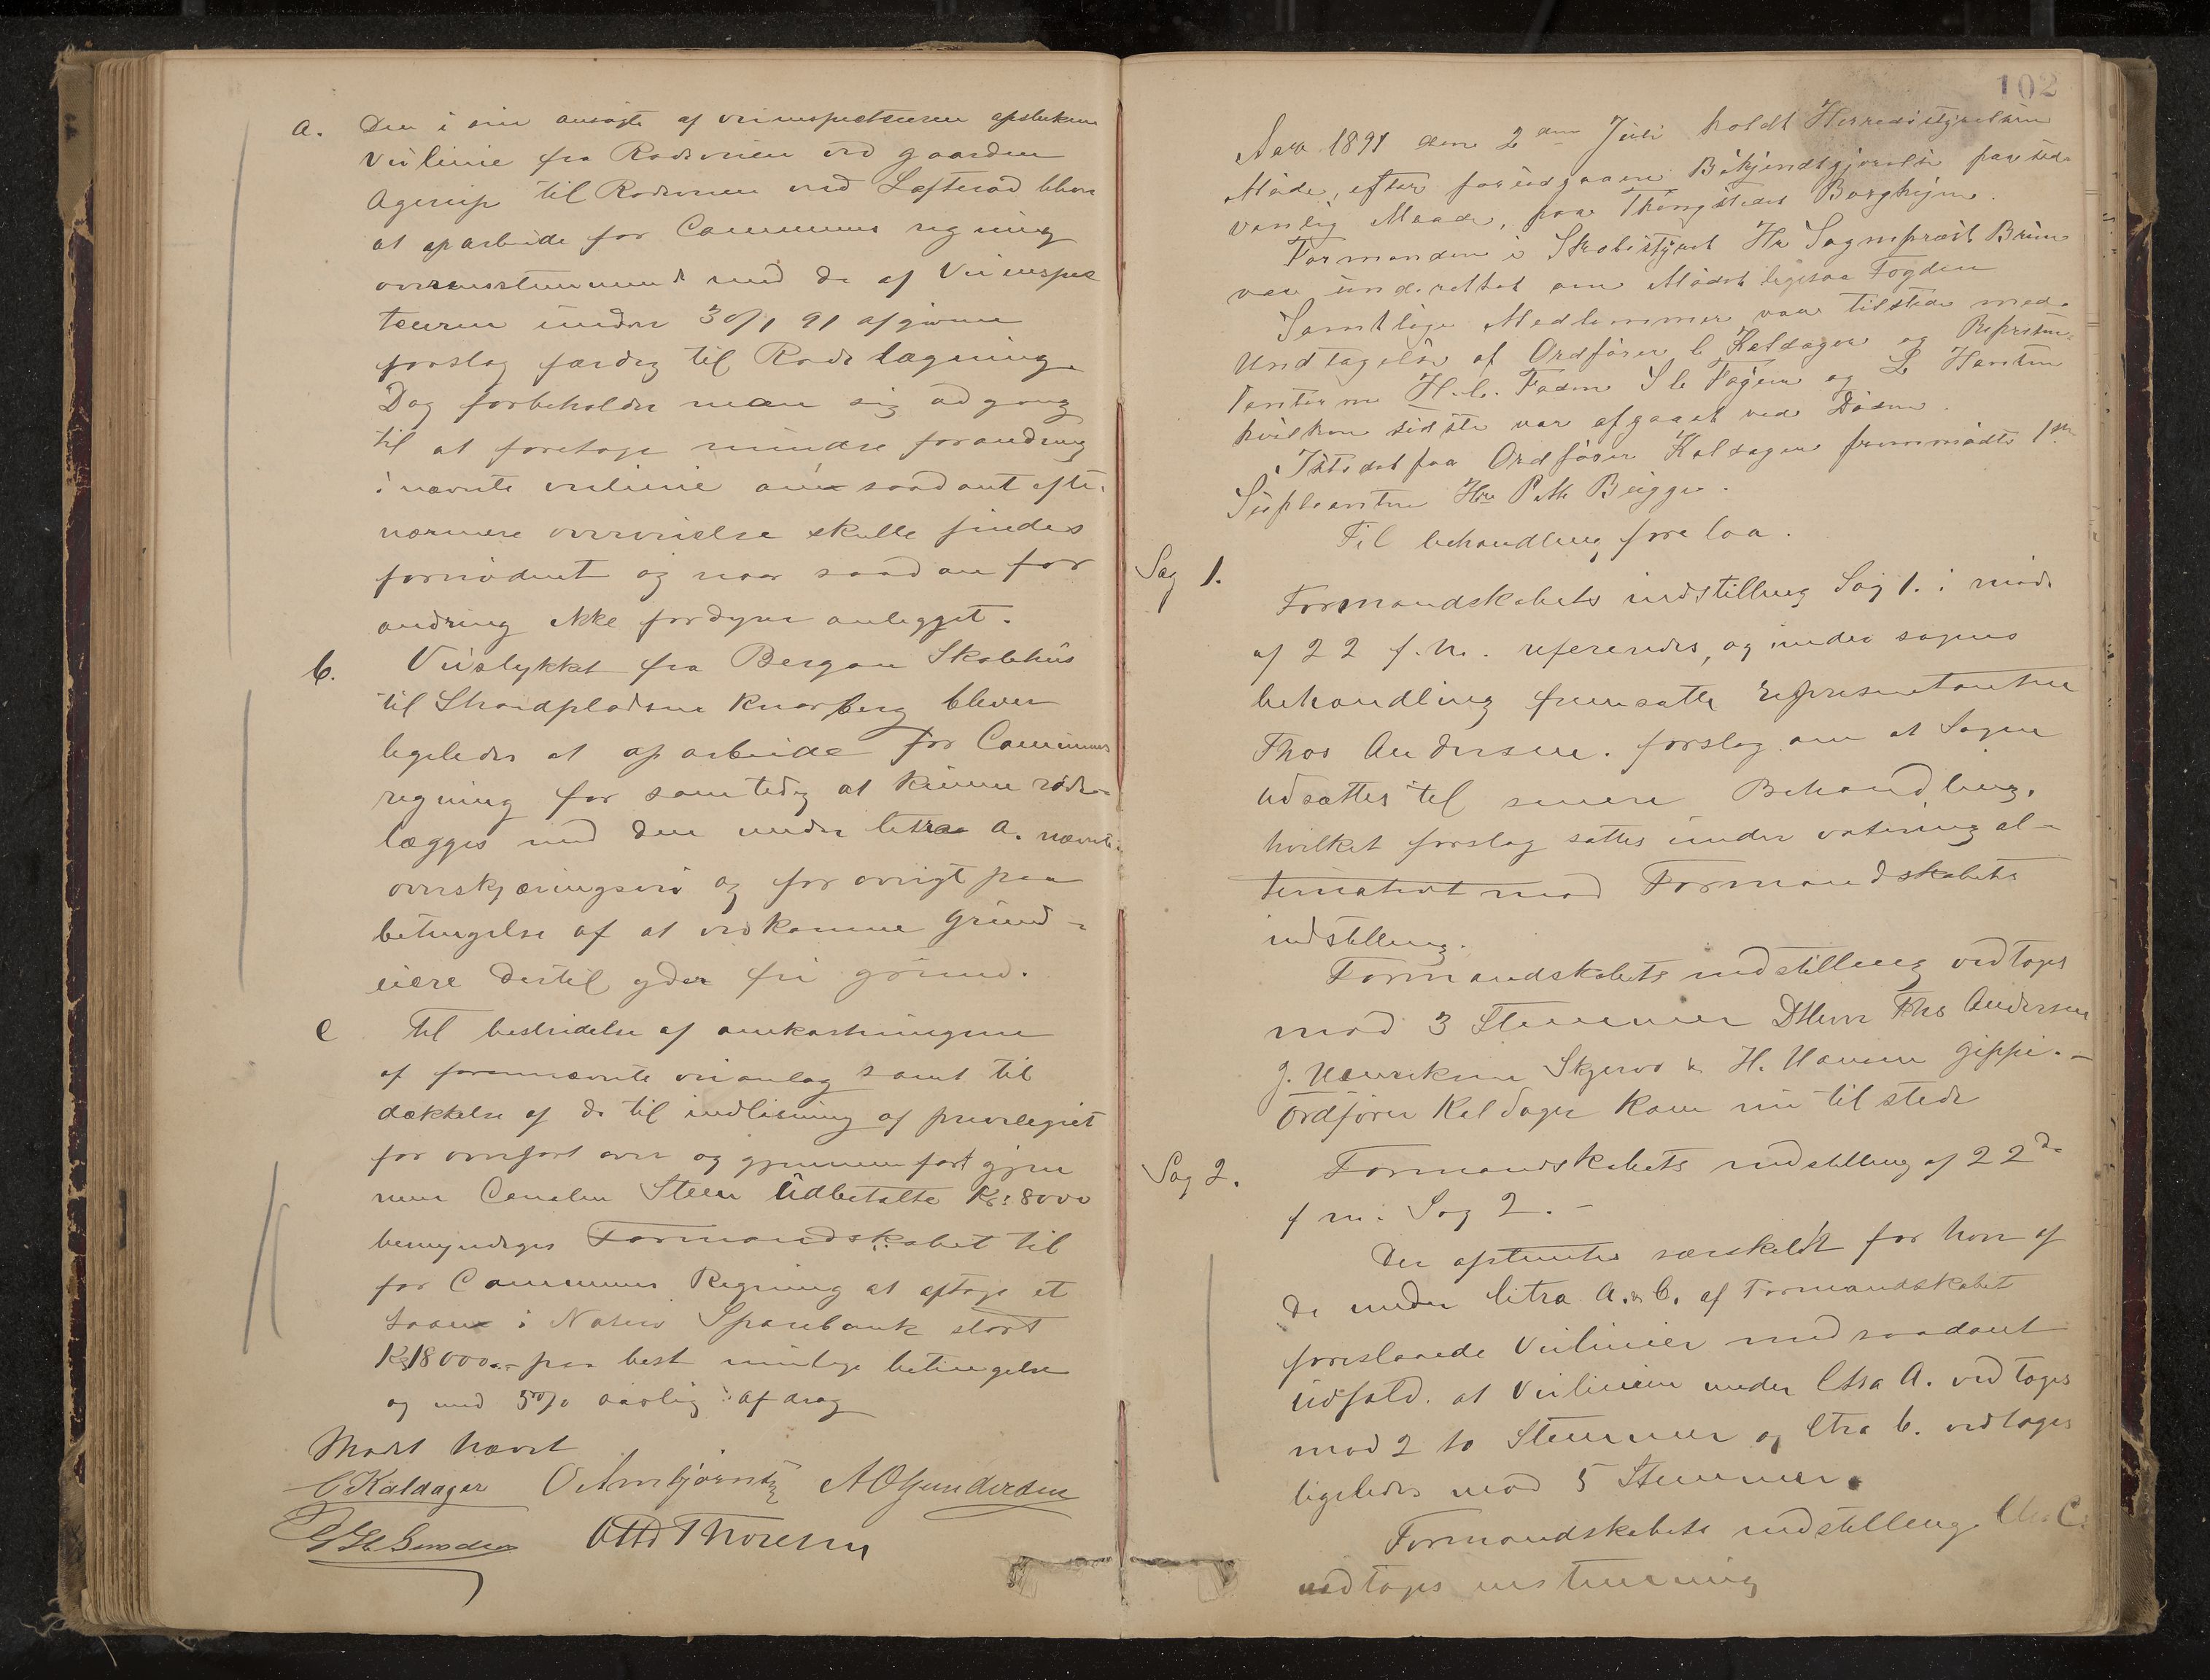 a. Den i sin ansøgte af veiinspecteuren opstukne
Veilinie fra Rodeveien ved gaarden
Agerup til Rodeveien ved Løfterød bliver
at oparbeide for Communens regning
overensstemmende med de af Veiinspec
teuren under 30/1 91 afgivne
forslag færdig til Rodelægning.
Dog forbeholder man sig adgang
til at foretage mindre forandring
i nævnte veilinie om saadant efter
nærmere overveielse skulle findes
fornødent og naar saadan for
andring ikke fordyrer anlegget.
b. Veistykket fra Bergan Skolehus
til Strandpladsene Knarberg bliver
ligeledes at oparbeide for Communens
regning for samtidig at kunne rode-
lægges med den under litra a. nævnte
overskjæringsvei og for øvrigt paa
betingelse af at vedkomne grund-
eiere dertil yder fri grund.
c Til bestridelse af omkostningerne
af forannævnte veianlæg samt til
dækkelse af de til indløsning af privilegiet
for overfart over og gjennemfart gjen
nem Canalen Steen Udbetalte Kr: 8000
bemyndiges Formandskabet til
for Communens Regning at optage et
Laan i Nøterø Sparebank stort
Kr 18000.- paa best mulige betingelse
og med 5% aarlig afdrag
Mødet hævet
C Kaldager O Arnbjørnsen A O Gundersen
Otto Thoresen
102
Aar 1891 den 2den Juli holdt Herredsstyrelsen
Møde, efter forudgaaen Bekjendtgjørelse paa sed-
vanlig Maade, paa Thingstedet Borgheim.
Formanden i Skolestyret Hr Sognepræst Bruun
var underrettet om Mødet ligesaa Fogden
Samtlige Medlemmer var tilstede med
Undtagelse af Ordfører C Kaldager og Repræsen-
tanterne H. C. Foden S C Fagen og L Hansen
hvilken sidste var afgaaet ved Døden.
Istedet for Ordfører Kaldager fremmødte 1ste
Supleanten Hr P M Brigge.
Til behandling forelaa.
Sag 1.
Formandskabets indstilling Sag 1. i møde
af 22 f. M. refereredes, og under sagens
behandling fremsatte repræsentanten
Thos Andersen. forslag om at Sagen
udsættes til senere Behandling,
hvilket forslag sattes under votering al-
ternativt mod Formandskabets
indstilling.
Formandskabets indstilling vedtoges
mod 3 Stemmer DHerr Ths Andersen
J. Henriksen Skjervø & H. Hansen Gippe.-
Ordfører Kaldager kom nu tilstede
Sag 2. Formandskabets indstilling af 22de
f m. Sag 2.-
Der afstemtes særskildt for hver af
de under litra A. & b. af Formandskabet
foreslaaede Veilinier med saadant
Udfald. at Veilinien under litra A. vedtoges
mod 2 to Stemmer og litra b. vedtoges
ligeledes mod 5 Stemmer.
Formandskabets indstilling litra C.
vedtoges enstemmig